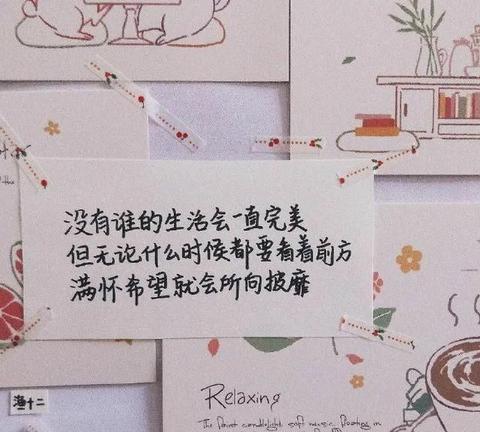 没有谁的生活会一直完美
但无论什么时候都要看着前方
满怀希望就会所向披靡
渔十二
Relaxing
The faint candlelight soft music floating in